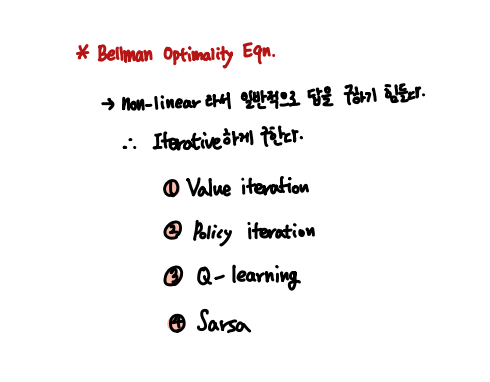 * Bellman Optimality Eqn.
→ Non-linear 라서 일반적으로 답을 구하기 힘들다.
∴ Iterative하게 구한다.
① Value iteration
② Policy iteration
③ Q-learning
④ Sarsa